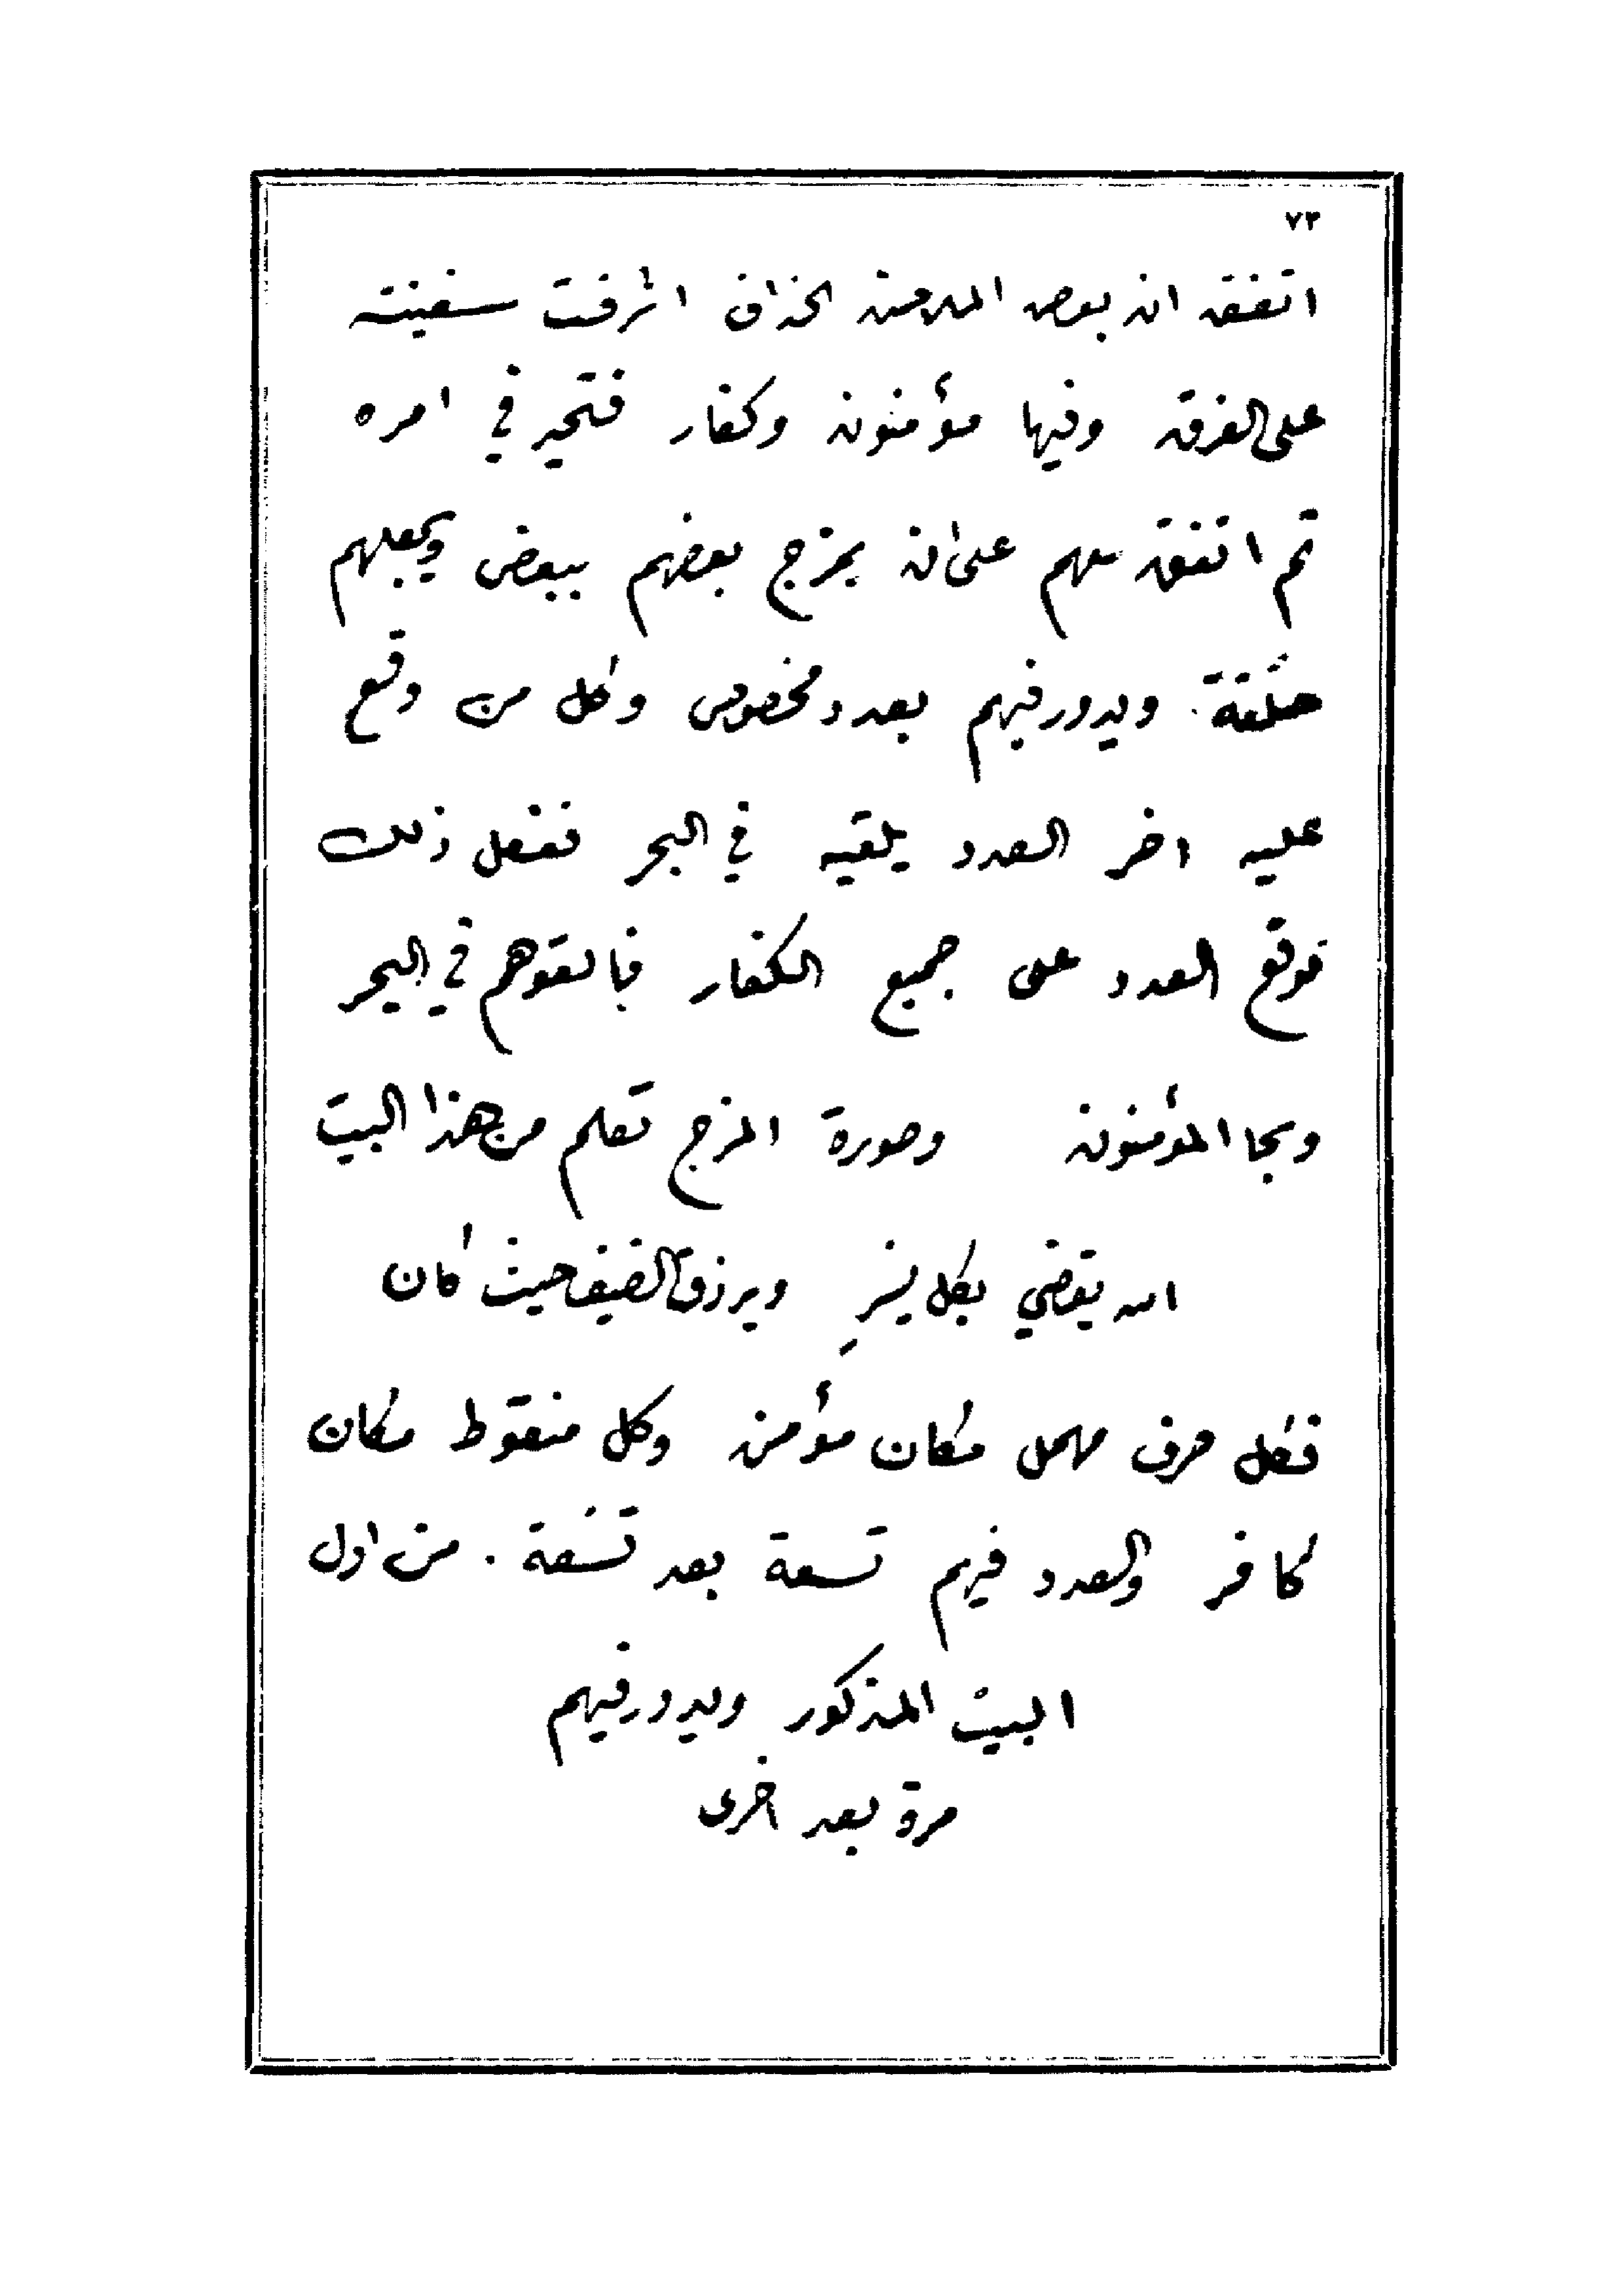 ٧٣
اتفق ان بعض الملاحين الحذاق اشرفت سفينته
على الغرق وفيها مؤمنون وكفار فتحير في امره
ثم اتفق معهم على ان يمزج بعضهم ببعض ويجعلهم
حلقة ويدور فيهم بعدد مخصوص وكل من وقع
عليه اخر العدد يلقيه في البحر ففعل ذلك
فوقع العدد على جميع الكفار فالقوهم في البحر
ونجا المؤمنون وصورة المزج تعلم من هذا البيت
الله يقضي بكل يسرٍ ويرزق الضيف حيث كان
فكل حرف مهمل مكان مؤمن وكل منقوط مكان
كافر والعدد فيهم تسعة بعد تسعة . من اول
البيت المذكور ويدور فيهم
مرة بعد اخرى